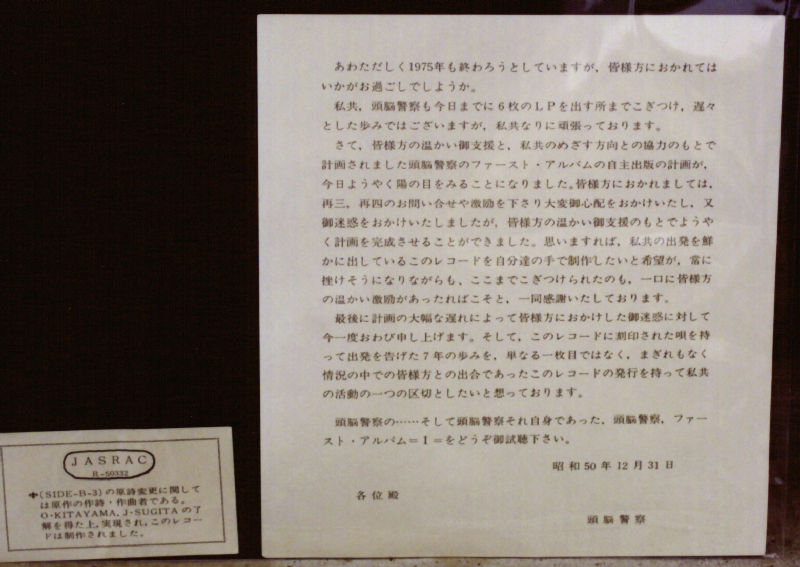 あわただしく1975年も終わろうとしていますが，皆様方におかれては
いかがお過ごしでしようか。
私共，頭脳警察も今日までに6枚のLPを出す所までこぎつけ，遅々
とした歩みではございますが，私共なりに頑張っております。
さて，皆様方の温かい御支援と，私共のめざす方向との協力のもとで
計画されました頭脳警察のファースト・アルバムの自主出版の計画が，
今日ようやく陽の目をみることになりました。皆様方におかれましては，
再三，再四のお問い合せや激励を下さり大変御心配をおかけいたし，又
御迷惑をおかけいたしましたが，皆様方の温かい御支援のもとでようや
く計画を完成させることができました。思いますれば，私共の出発を鮮
かに出しているこのレコードを自分達の手で制作したいと希望が，常に
挫けそうになりながらも，ここまでこぎつけられたのも，一口に皆様方
の温かい激励があったればこそと，一同感謝いたしております。
最後に計画の大幅な遅れによって皆様方におかけした御迷惑に対して
今一度おわび申し上げます。そして，このレコードに刻印された唄を持
って出発を告げた7年の歩みを，単なる一枚目ではなく，まぎれもなく
情況の中での皆様方との出合であったこのレコードの発行を持って私共
の活動の一つの区切としたいと想っております。
頭脳警察の……そして頭脳警察それ自身であった，頭脳警察，ファー
スト・アルバム＝I＝をどうぞ御試聴下さい。
昭和50年12月31日
各位殿
頭脳警察
JASRAC
R-50332
✚(SIDE-B-3)の原詩変更に関して
は原作の作詩・作曲者である。
O・KITAYAMA，J・SUGITAの了
解を得た上，実現され，このレコー
ドは制作されました。